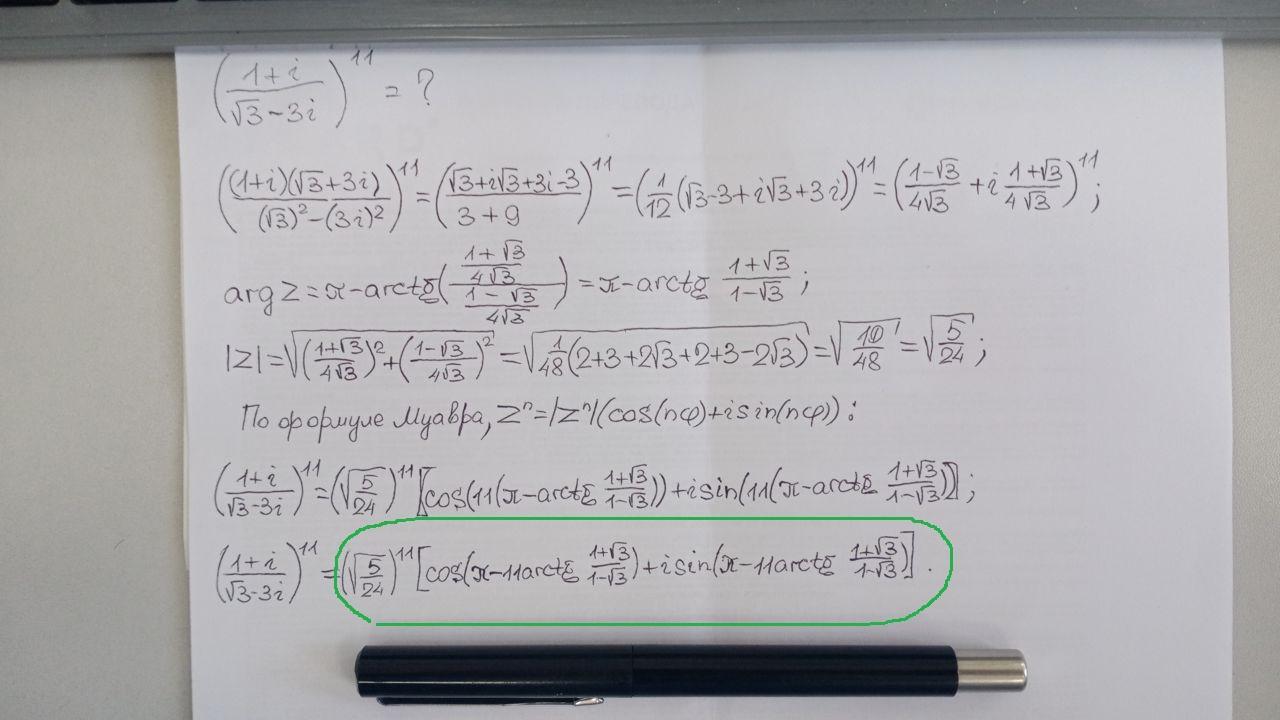 ((1+i)/(√3-3i))^11 = ?
((1+i)(√3+3i)/((√3)²-(3i)²))^11 = ((√3+i√3+3i-3)/(3+9))^11 = (1/12(√3-3+i√3+3i))^11 = ((1-√3)/(4√3) + i (1+√3)/(4√3))^11;
arg z = π-arctg(((1+√3)/(4√3))/((1-√3)/(4√3))) = π-arctg (1+√3)/(1-√3);
|z| = √(((1+√3)/(4√3))²+((1-√3)/(4√3))²) = √(1/48(2+3+2√3+2+3-2√3)) = √(10/48) = √(5/24);
По формуле Муавра, zⁿ=|zⁿ|(cos(nφ)+isin(nφ)):
((1+i)/(√3-3i))^11 = (√(5/24))^11 [cos(11(π-arctg (1+√3)/(1-√3)))+isin(11(π-arctg (1+√3)/(1-√3))];
((1+i)/(√3-3i))^11 = (√(5/24))^11 [cos(π-11arctg (1+√3)/(1-√3))+isin(π-11arctg (1+√3)/(1-√3))].